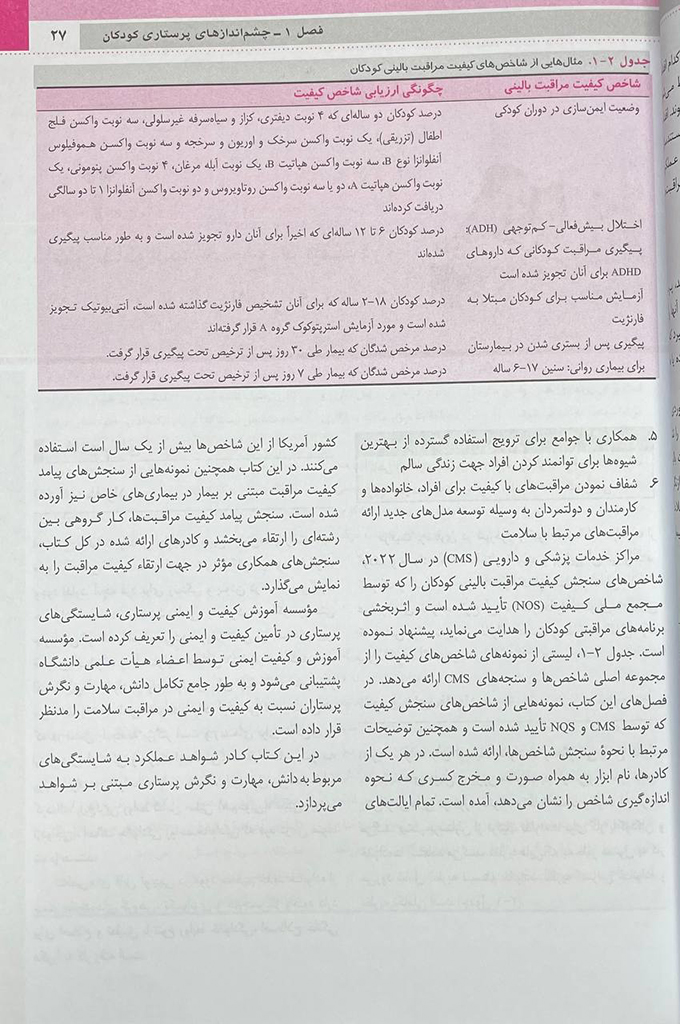 فصل ۱ ـ چشم‌اندازهای پرستاری کودکان
۲۷
جدول ۲-۱. مثال‌هایی از شاخص‌های کیفیت مراقبت بالینی کودکان
شاخص کیفیت مراقبت بالینی
چگونگی ارزیابی شاخص کیفیت
وضعیت ایمن‌سازی در دوران کودکی
درصد کودکان دو ساله‌ای که ۴ نوبت دیفتری، کزاز و سیاه‌سرفه غیرسلولی، سه نوبت واکسن فلج
اطفال (تزریقی)، یک نوبت واکسن سرخک و اوریون و سرخجه و سه نوبت واکسن هموفیلوس
آنفلوانزا نوع B، سه نوبت واکسن هپاتیت B، یک نوبت آبله مرغان، ۴ نوبت واکسن پنومونی، یک
نوبت واکسن هپاتیت A، دو یا سه نوبت واکسن روتاویروس و دو نوبت واکسن آنفلوانزا ۱ تا دو سالگی
دریافت کرده‌اند
اختلال بیش‌فعالی- کم‌توجهی (ADH):
پیگیری مراقبت کودکانی که داروهای
ADHD برای آنان تجویز شده است
درصد کودکان ۶ تا ۱۲ ساله‌ای که اخیراً برای آنان دارو تجویز شده است و به طور مناسب پیگیری
شده‌اند
آزمایش مناسب برای کودکان مبتلا به
فارنژیت
درصد کودکان ۱۸-۲ ساله که برای آنان تشخیص فارنژیت گذاشته شده است، آنتی‌بیوتیک تجویز
شده است و مورد آزمایش استرپتوکوک گروه A قرار گرفته‌اند
پیگیری پس از بستری شدن در بیمارستان
برای بیماری روانی: سنین ۱۷-۶ ساله
درصد مرخص شدگان که بیمار طی ۳۰ روز پس از ترخیص تحت پیگیری قرار گرفت.
درصد مرخص شدگان که بیمار طی ۷ روز پس از ترخیص تحت پیگیری قرار گرفت.
۵. همکاری با جوامع برای ترویج استفاده گسترده از بهترین
شیوه‌ها برای توانمند کردن افراد جهت زندگی سالم
۶. شفاف نمودن مراقبت‌های با کیفیت برای افراد، خانواده‌ها و
کارمندان و دولتمردان به وسیله توسعه مدل‌های جدید ارائه
مراقبت‌های مرتبط با سلامت
مراکز خدمات پزشکی و دارویی (CMS) در سال ۲۰۲۲،
شاخص‌های سنجش کیفیت مراقبت بالینی کودکان را که توسط
مجمع ملی کیفیت (NOS) تأیید شده است و اثربخشی
برنامه‌های مراقبتی کودکان را هدایت می‌نماید، پیشنهاد نموده
است. جدول ۲-۱، لیستی از نمونه‌های شاخص‌های کیفیت را از
مجموعه اصلی شاخص‌ها و سنجه‌های CMS ارائه می‌دهد. در
فصل‌های این کتاب، نمونه‌هایی از شاخص‌های سنجش کیفیت
که توسط CMS و NQS تأیید شده است و همچنین توضیحات
مرتبط با نحوهٔ سنجش شاخص‌ها، ارائه شده است. در هر یک از
کادرها، نام ابزار به همراه صورت و مخرج کسری که نحوه
اندازه‌گیری شاخص را نشان می‌دهد، آمده است. تمام ایالت‌های
کشور آمریکا از این شاخص‌ها بیش از یک سال است استفاده
می‌کنند. در این کتاب همچنین نمونه‌هایی از سنجش‌های پیامد
کیفیت مراقبت مبتنی بر بیمار در بیماری‌های خاص نیز آورده
شده است. سنجش پیامد کیفیت مراقبت‌ها، کار گروهی بین
رشته‌ای را ارتقاء می‌بخشد و کادرهای ارائه شده در کل کتاب،
سنجش‌های همکاری مؤثر در جهت ارتقاء کیفیت مراقبت را به
نمایش می‌گذارد.
مؤسسه آموزش کیفیت و ایمنی پرستاری، شایستگی‌های
پرستاری در تأمین کیفیت و ایمنی را تعریف کرده است. مؤسسه
آموزش و کیفیت ایمنی توسط اعضاء هیأت علمی دانشگاه
پشتیبانی می‌شود و به طور جامع تکامل دانش، مهارت و نگرش
پرستاران نسبت به کیفیت و ایمنی در مراقبت سلامت را مدنظر
قرار داده است.
در این کتاب کادر شواهد عملکرد به شایستگی‌های
مربوط به دانش، مهارت و نگرش پرستاری مبتنی بر شواهد
می‌پردازد.